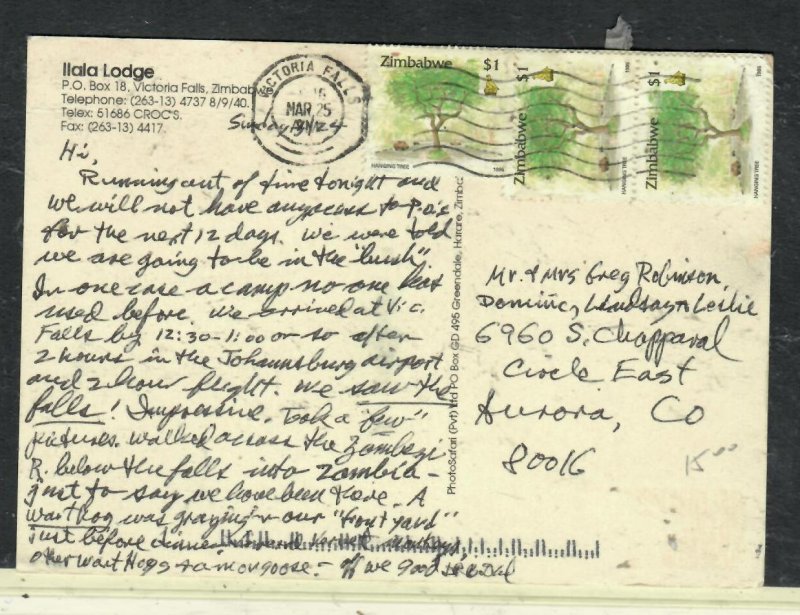 Ilala Lodge
P.O. Box 18, Victoria Falls, Zimbabwe
Telephone: (263-13) 4737 8/9/40.
Telex: 51686 CROC'S.
Fax: (263-13) 4417.
VICTORIA FALLS
MAR 25
Zimbabwe $1
HANGING TREE 1996
Zimbabwe $1
HANGING TREE 1996
Zimbabwe $1
HANGING TREE 1996
Sunday 3/24
Hi,
Running out of time tonight and
we will not have any access to P.O.'s
for the next 12 days. We were told
we are going to be in the "bush",
In one case a camp no one has
used before. We arrived at Vic.
Falls by 12:30-1:00 or so after
2 hours in the Johannsburg airport
and 2 hour flight. We saw the
falls! Impressive. Took a "few"
pictures. Walked across the Zambezi
R. below the falls into Zambia -
just to say we have been there. A
warthog was grazing in our "front yard"
just before dinner
other wart Hogs & a mongoose. - off we go
PhotoSafari (Pvt) Ltd PO Box GD 495 Greendale, Harare, Zimba
Mr. & Mrs Greg Robinson,
Dominic, Lindsay & Leslie
6960 S. Chapparal
Circle East
Aurora, Co
80016
15.00